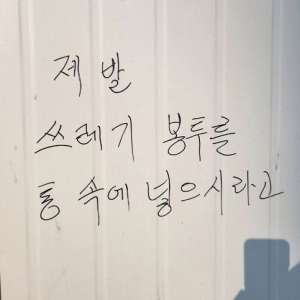 제 발
쓰레기 봉투를
통 속에 넣으시라고